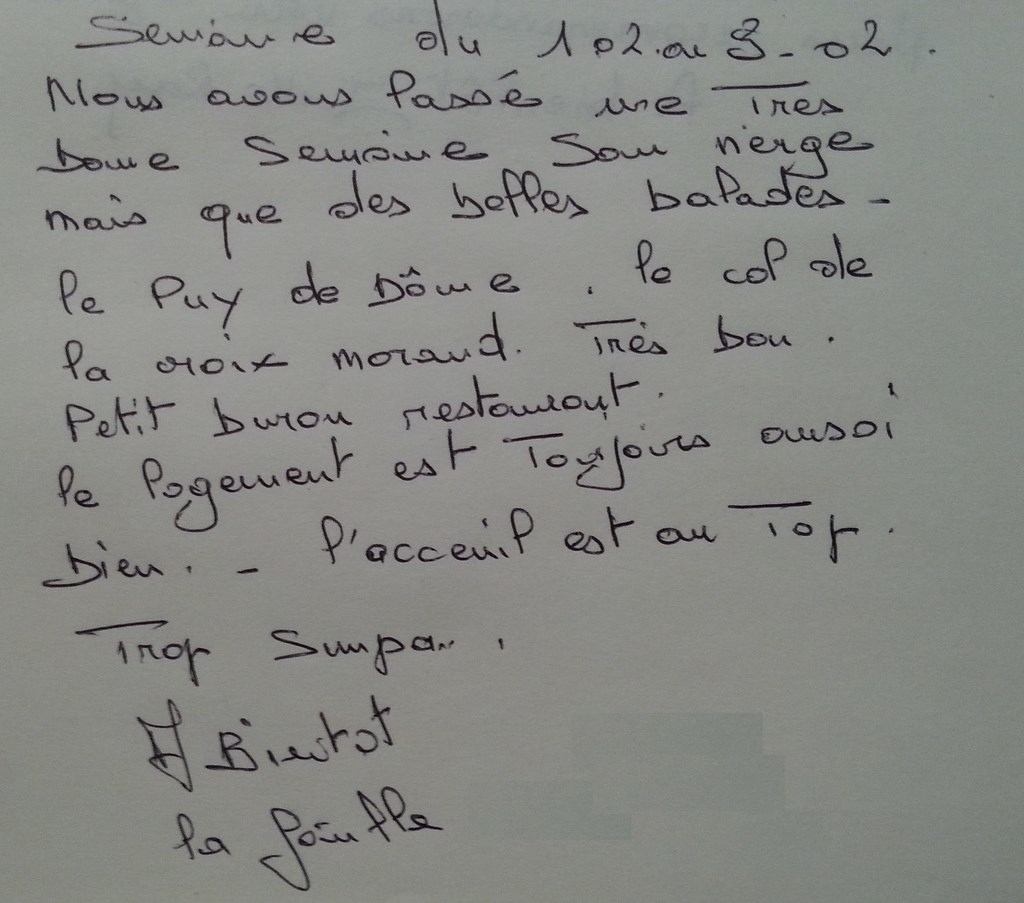 Semaine du 1 02. au 8 - 02 .
Nous avons passé une Très
bonne Semaine Sans neige
mais que des belles balades -
le Puy de Dôme . le col de
la croix morand. Très bon .
Petit buron restaurant .
le logement est Toujours aussi
bien . - l'acceuil est au Top .
Trop Simpa .. .
A Bientot
la famille